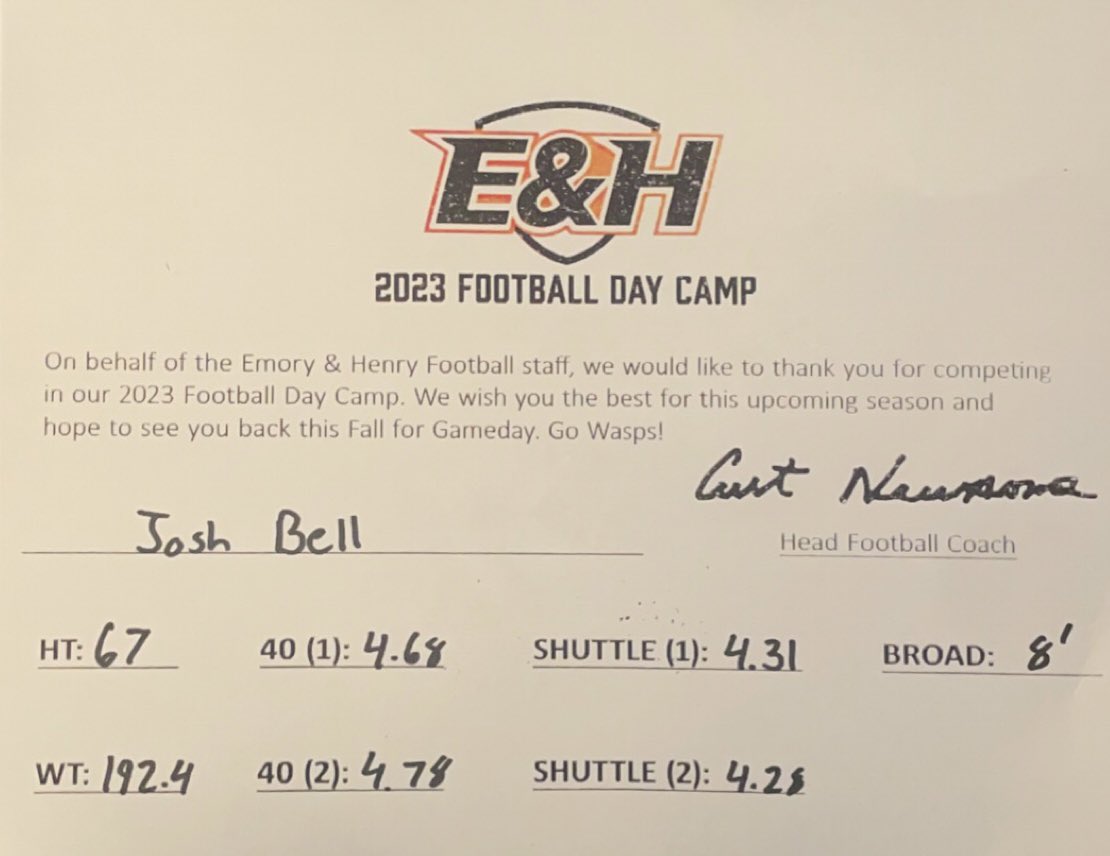 E&H
2023 FOOTBALL DAY CAMP
On behalf of the Emory & Henry Football staff, we would like to thank you for competing
in our 2023 Football Day Camp. We wish you the best for this upcoming season and
hope to see you back this Fall for Gameday. Go Wasps!
Curt Newsome
Josh Bell
Head Football Coach
HT: 67 40 (1): 4.68 SHUTTLE (1): 4.31 BROAD: 8'
WT: 192.4 40 (2): 4.78 SHUTTLE (2): 4.28